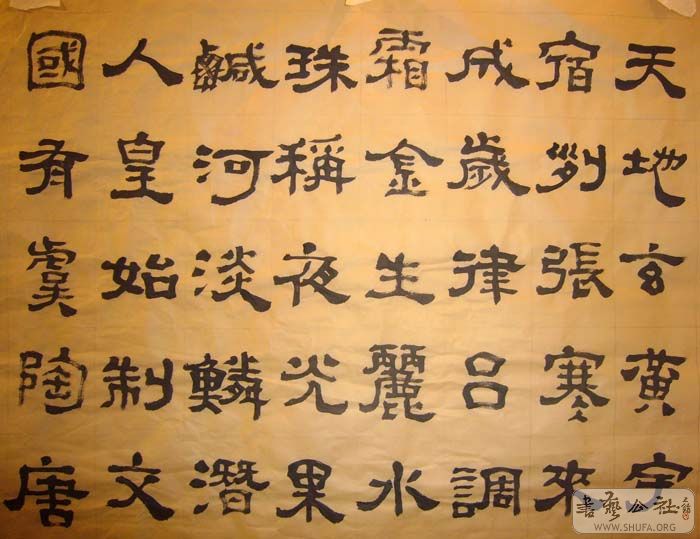 天地玄黃宇
宿列張寒來
成歲律呂調
霜金生麗水
珠稱夜光果
鹹河淡鱗潛
人皇始制文
國有虞陶唐
書藝公社
WWW.SHUFA.ORG